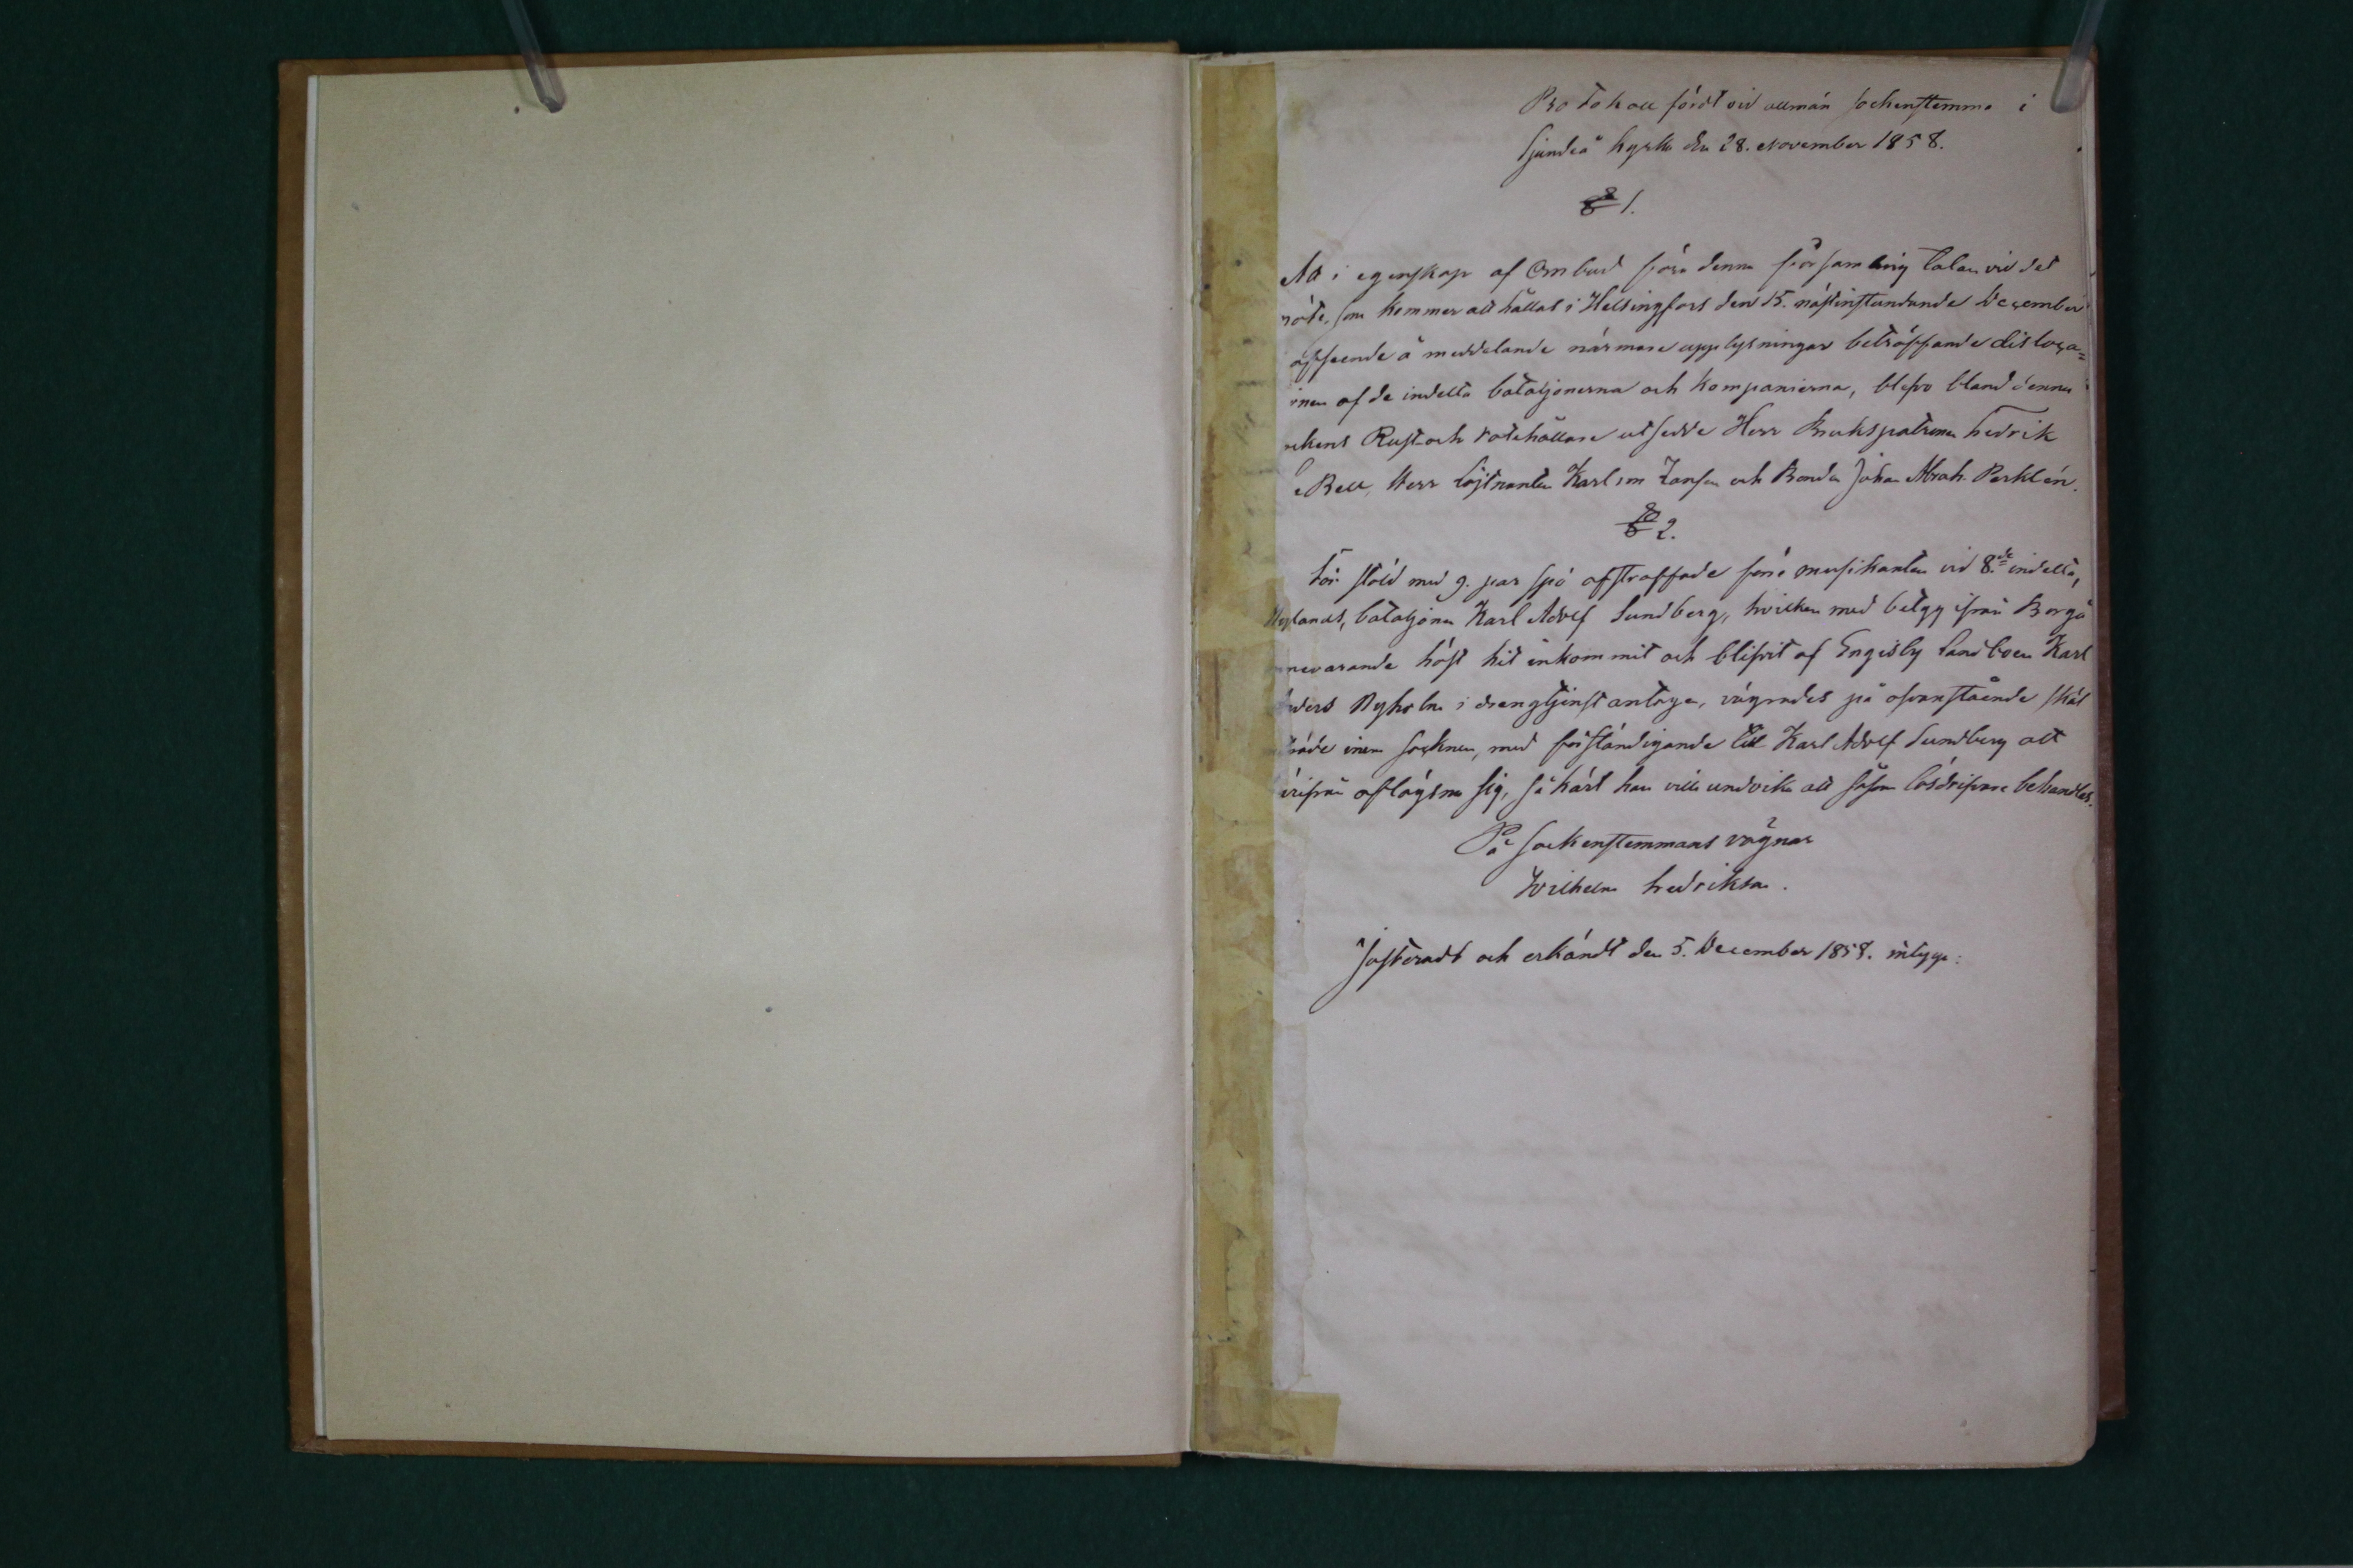 Protokoll fördt vid allmän sockenstemma i
Sjundeå kyrka den 28. November 1858.
§ 1.
Att i egenskap af Ombud föra denna församling talan vid det
möte, som kommer att hållas i Helsingfors den 15. nästinstundande December
afseende å meddelande närmare upplysningar beträffande disloca=
onen af de indelta bataljonerna och kompanierna, blefvo bland denna
ockens Rust- och rotehållare utsedde Herr Brukspatronen Fredrik
e Bell, Herr Löjtnanten Karl von Zansen och Bonden Johan Abrah. Perklén.
§ 2.
För stöld med 9. par spö afstraffade förre musikanten vid 8.de indelta,
Nylands, bataljonen Karl Adolf Sundberg, hvilken med betyg ifrån Borgå
innevarande höst hit inkommit och blifvit af Engisby landboen Karl
Anders Nyholm i drengtjenst antagen, vägrades på ofvanstående skäl
inträde inom socknen, med förständigande till Karl Adolf Sundberg att
härifrån aflägsna sig, så kärt han ville undvika att såsom lösdrifvare behandlas.
På Sockenstemmans vägnar
Wilhelm Fredrikson.
Justeradt och erkändt den 5. December 1858. intyga: